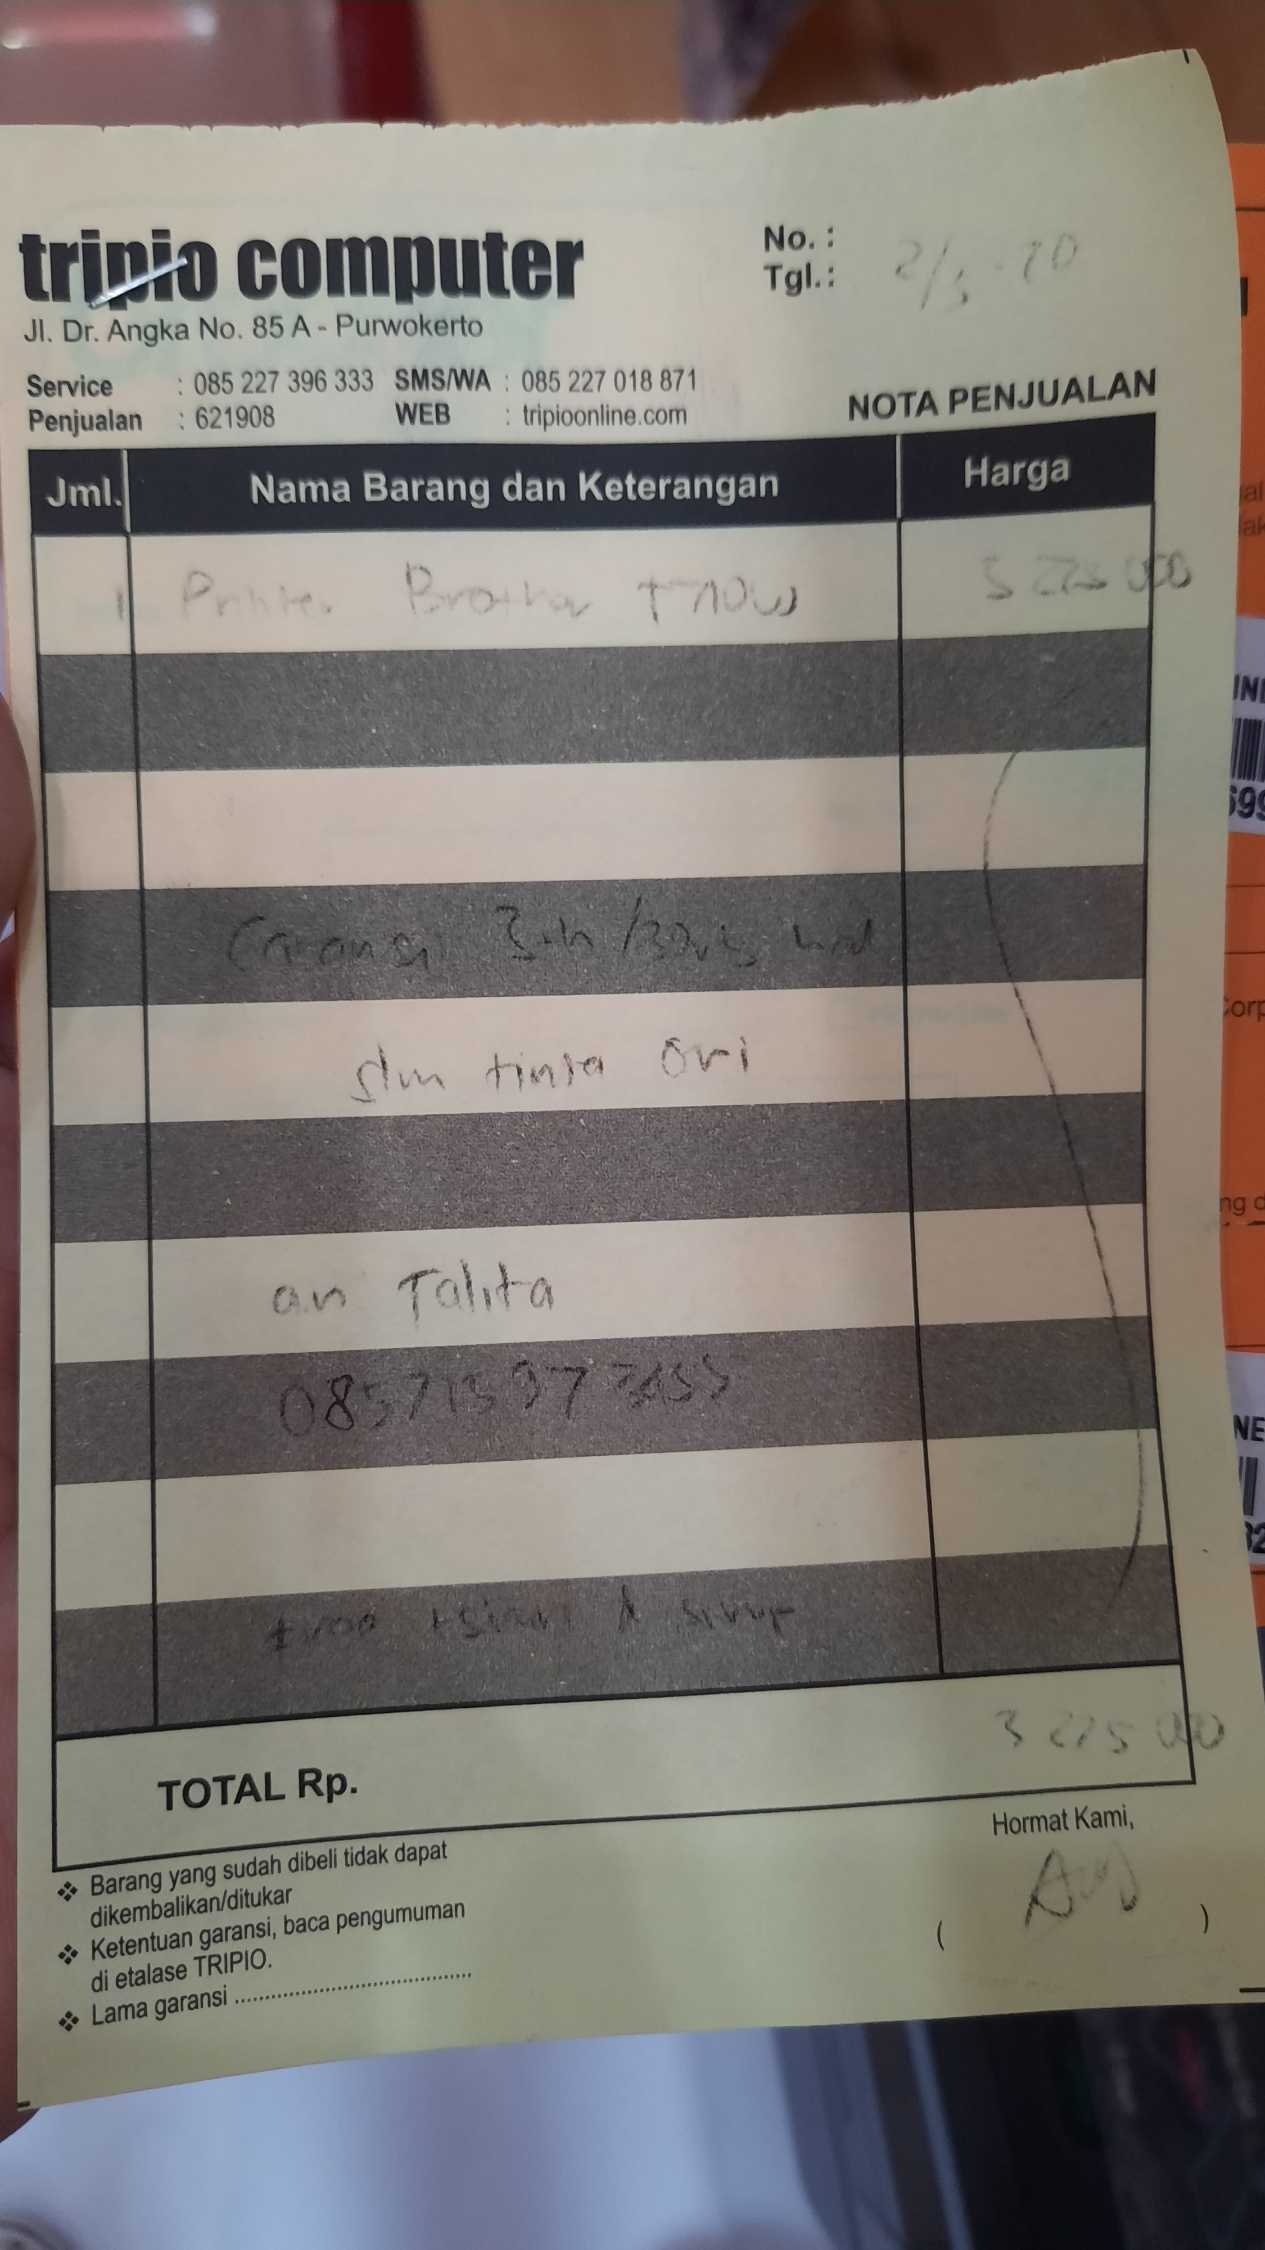 tripio computer
Jl. Dr. Angka No. 85 A - Purwokerto
Service : 085 227 396 333 SMS/WA : 085 227 018 871
Penjualan : 621908 WEB : tripioonline.com
No. :
Tgl. :
NOTA PENJUALAN
Jml. Nama Barang dan Keterangan Harga
1 Printer Brother 3 225 000
Garansi 3 th
tinta Ori
an Talita
TOTAL Rp. 3 225 000
Hormat Kami,
( )
❖ Barang yang sudah dibeli tidak dapat
dikembalikan/ditukar
❖ Ketentuan garansi, baca pengumuman
di etalase TRIPIO.
❖ Lama garansi ....................................